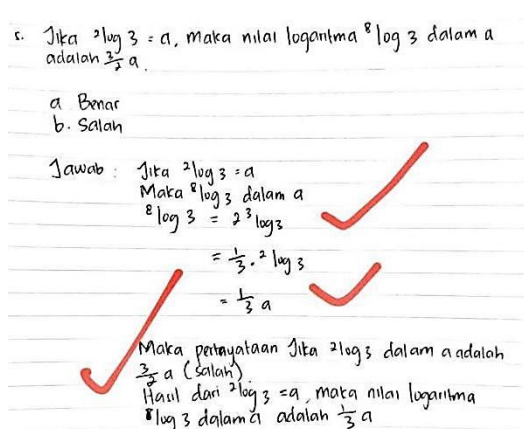 5. Jika ²log 3 = a, maka nilai logaritma ⁸log 3 dalam a
adalah 3/2 a.
a Benar
b. Salah
Jawab : Jika ²log 3 = a
Maka ⁸log 3 dalam a
⁸log 3 = 2³log3
= 1/3 . ²log 3
= 1/3 a
Maka pertayataan Jika ²log3 dalam a adalah
3/2 a (salah)
Hasil dari ²log 3 = a, maka nilai logaritma
⁸log 3 dalam a adalah 1/3 a